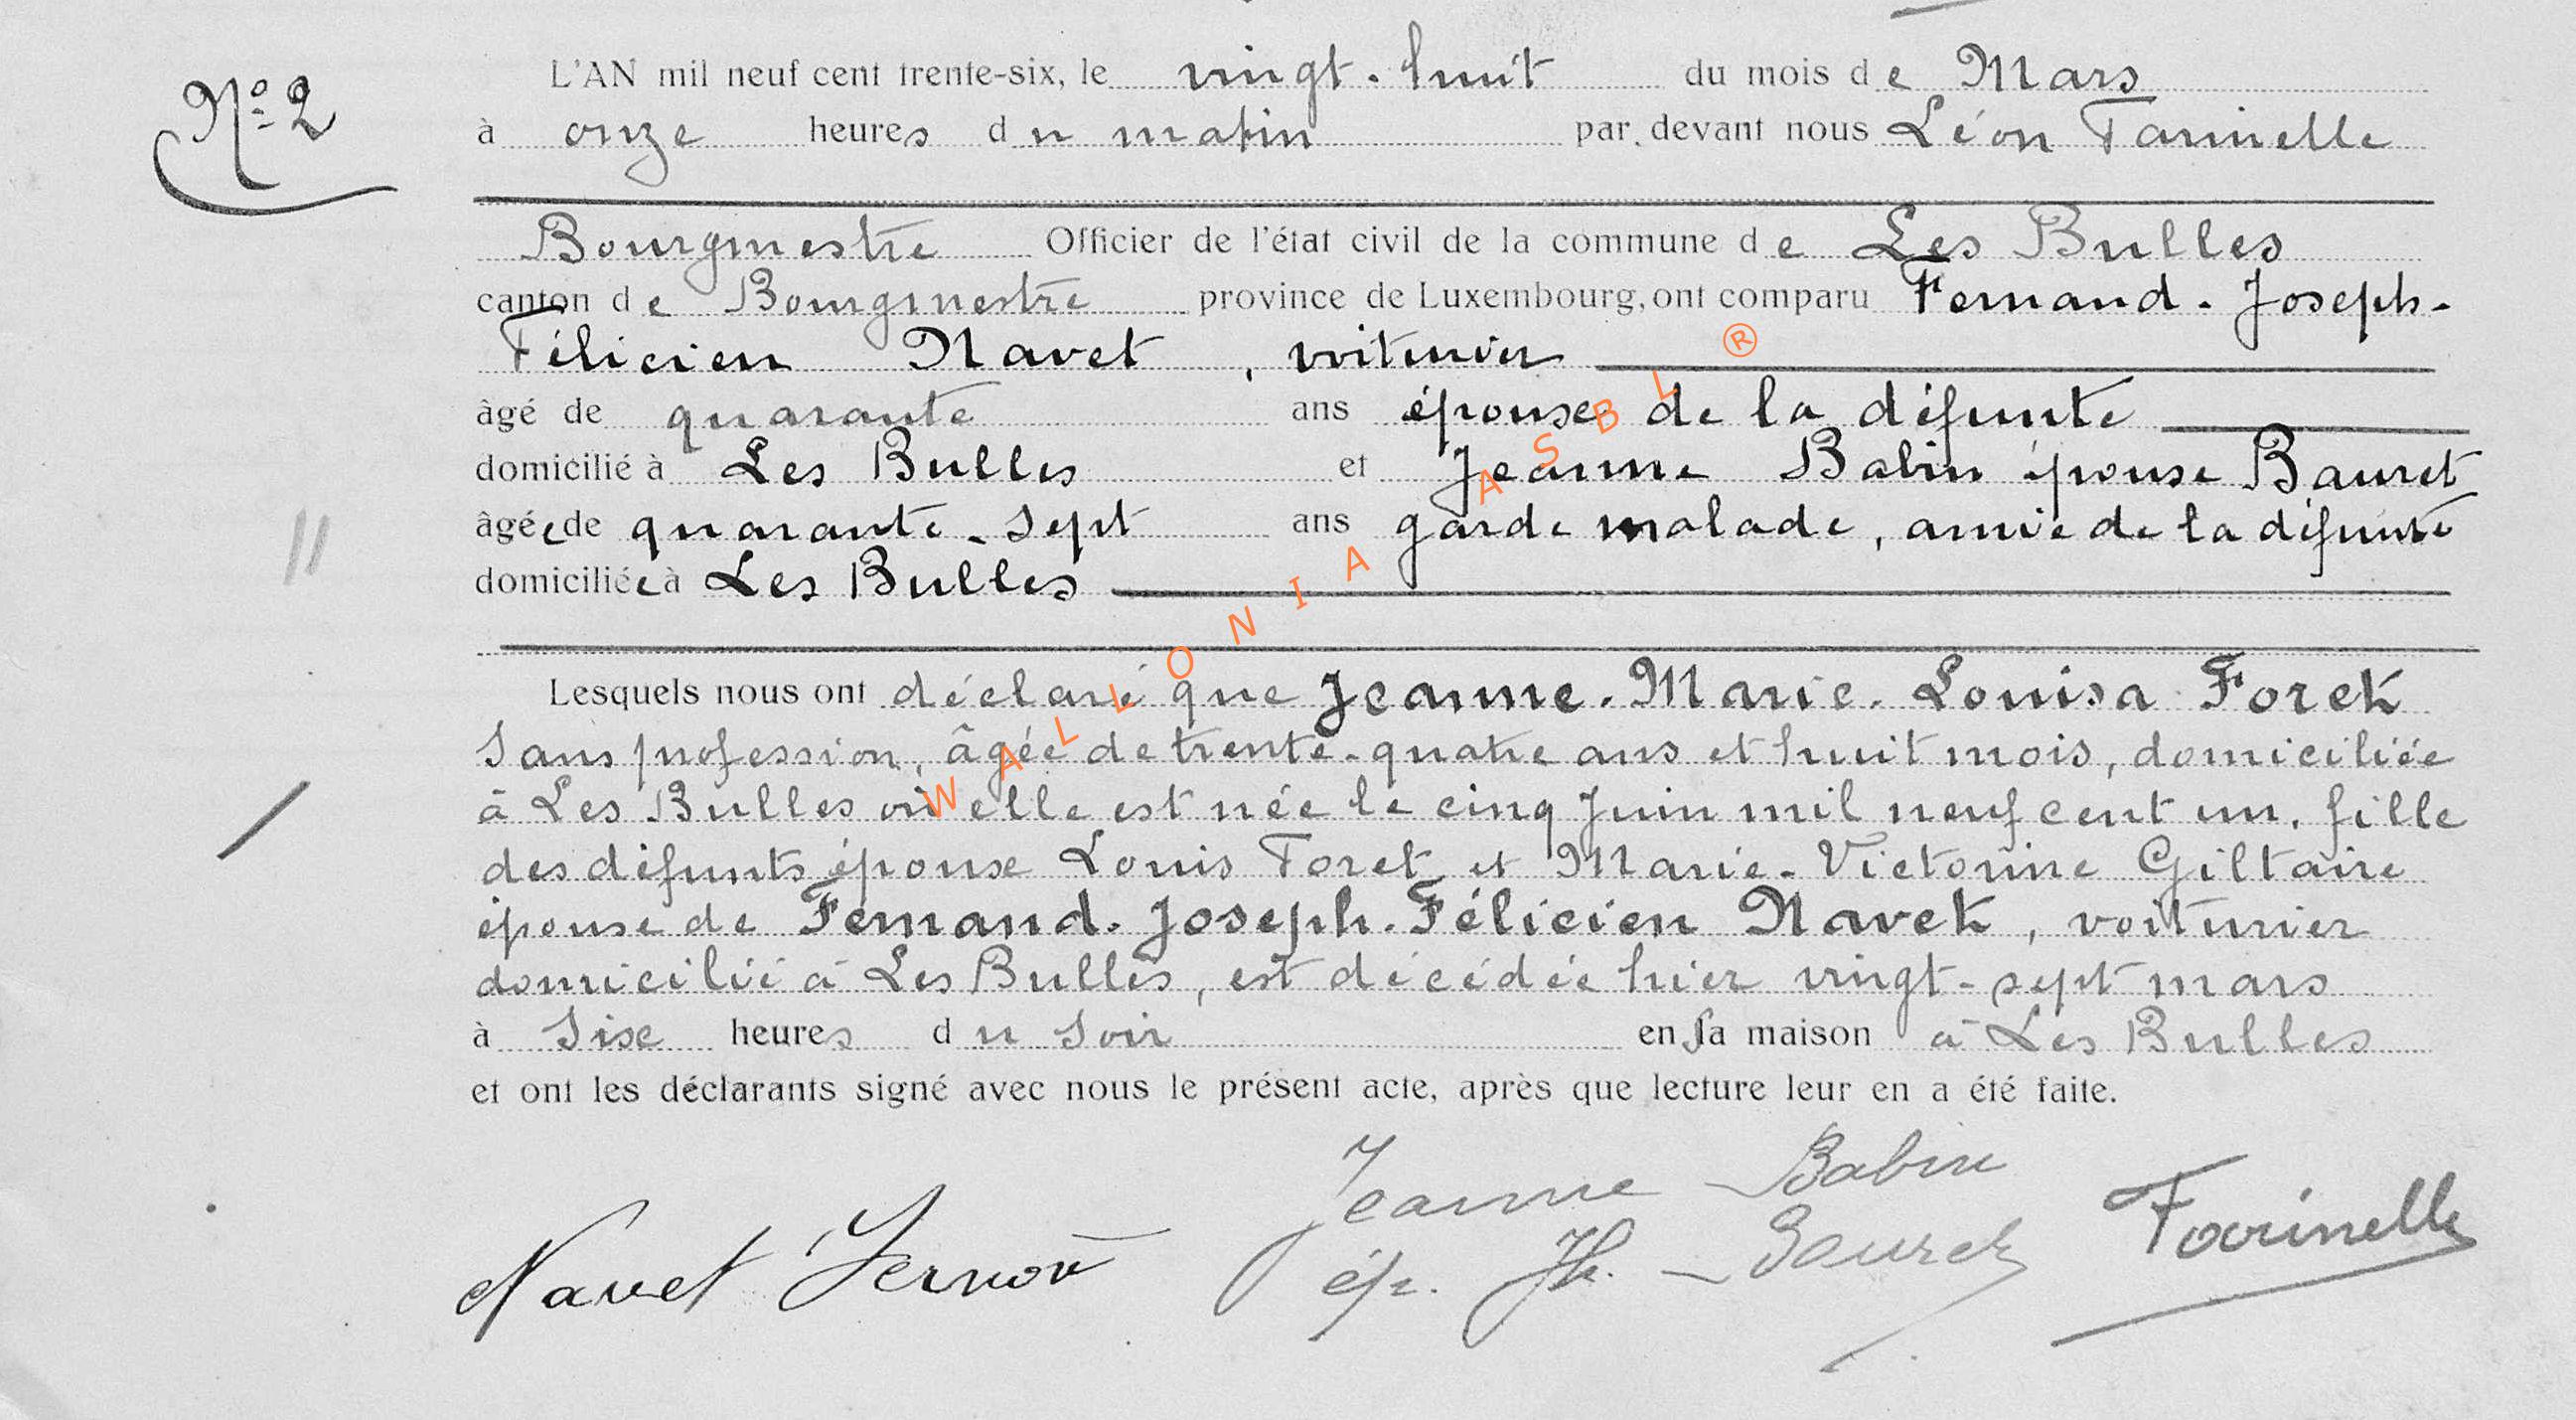 N° 2
L'AN mil neuf cent trente-six, le vingt-huit du mois de Mars
à onze heures du matin par devant nous Léon Farinelle
Bourgmestre Officier de l'état civil de la commune de Les Bulles
canton de Bourgmestre province de Luxembourg, ont comparu Fernand-Joseph-
Félicien Navet, voiturier
âgé de quarante ans épouse de la défunte
domicilié à Les Bulles et Jeanne Babin épouse Bauret
âgée de quarante-sept ans garde malade, amie de la défunte
domiciliée à Les Bulles
Lesquels nous ont déclaré que Jeanne-Marie-Louisa Foret
sans profession, âgée de trente-quatre ans et huit mois, domiciliée
à Les Bulles où elle est née le cinq Juin mil neuf cent un, fille
des défunts épouse Louis Foret et Marie-Victorine Giltaire
épouse de Fernand-Joseph-Félicien Navet, voiturier
domicilié à Les Bulles, est décédée hier vingt-sept mars
à Six heures du soir en sa maison à Les Bulles
et ont les déclarants signé avec nous le présent acte, après que lecture leur en a été faite.
Jeanne Babin
Navet ép. Jh. Farinelle
WALLONIA ASBL ®